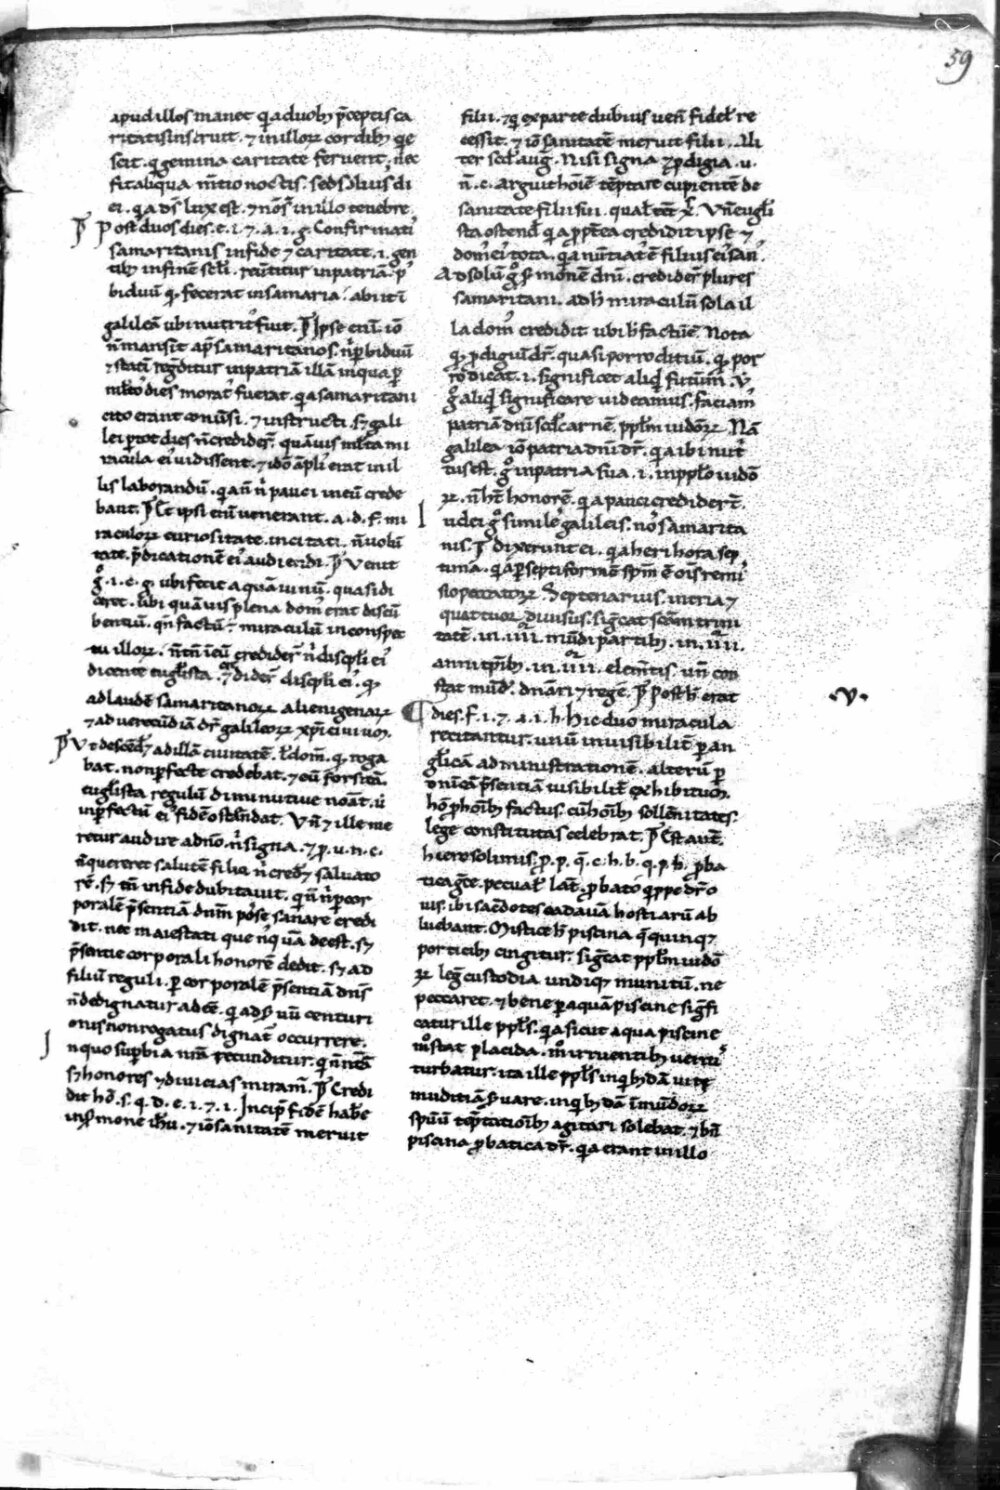 59
apud illos manet. q̄a duob; p̄ceptis ca
ritatis instruit. ⁊ in illoꝝ cordib; q̄e
scit. q̄ gemina caritate feruent. nec
fit aliqua m̄tio noctis. sed soli⁹ di
ei. q̄a ds̄ lux est. ⁊ nō s̄t in illo tenebre
Post duos dies. e. i. ⁊. a. i. g. Confirmati
samaritanis in fide ⁊ caritate. i. gen
tib; in finē scl̄i. reuertitur in patriā. p̄
biduū q̄. fecerat in samaria. abiit ī
galileā ubi nutrit⁹ fuit. Ipse enī. iō
n̄ mansit ap̄ samaritanos. n̄ p̄ biduū
⁊ statī regreditur in patriā illā in qua p̄
ml̄tos dies morat⁹ fuerat. q̄a samaritani
cito erant conūsi. ⁊ instructi. s; gali
lei p̄ tot dies n̄ crediderᵗ. quāuis ml̄ta mi
racula ei⁹ uidissent. ⁊ idō āpli⁹ erat in il
lis laborandū. q̄a n̄ n̄ pauci in eū crede
bant. Et ipsi enī uenerant. a. d. f. mi
raculoꝝ curiositate incitati. n̄ uolūn
tate p̄dicationē ei⁹ audiendi. Venit
g̊. i. c. g. ubi fecit aquā uinū. quasi di
ceret. Ubi quāuis plena dom⁹ erat discū
bentiū. q̄n factū ē miraculū in conspec
tu illoꝝ. n̄ tn̄ ī eū crediderᵗ n̄ discipl̄i ei⁹
dicente euglista. ⁊ crediderᵗ discipl̄i ei⁹. q̄
ad laudē samaritanoꝝ alienigenaꝝ
⁊ ad uerecūdiā dr̄ galileoꝝ xp̄i ciuiuoꝝ.
Vt descēd⁊ ad illā ciuitatē. l̄ domū. q̄ roga
bat. non p̄fecte credebat. ⁊ eū forsitā.
euglista regulū diminutiue noāt. ū
inp̄fectū ei⁹ fidē ostendat. Vn̄ ⁊ ille me
retur audire a dn̄o. n̄ signa. ⁊ p. u. n. c.
n̄ quereret salutē filii. n̄ cred⁊ saluato
rē. s; tn̄ in fide dubitauit. q̄ n̄ n̄ p̄ cor
poralē p̄sentiā dn̄m posse sanare credi
dit. nec maiestati que nq̄uā deest. s;
p̄sentie corporali honorē dedit. s; ad
filiū reguli. p̄ corporalē p̄sentiā dn̄s
n̄ dedignatur adēe. q̄ ad s̄uū centuri
onis non rogatus dignat⁹ occurrere.
In quo supbia nr̄a retunditur. q̄ n̄ nisi
s; honores ⁊ diuicias miram̄. Credi
dit hō. s. q. d. e. i. ⁊. i. Incip̄ fidē hab̄e
in s̄mone ih̄u. ⁊ iō sanitatē meruit
filii. ⁊ q̄ ex parte dubius uen̄ fidel̄ re
cessit. ⁊ iō sanitatē meruit filii. Ali
ter scd̄ auḡ. Nisi signa ⁊ prodigia. u.
n̄. c. arguit hoīē tēptare cupientē de
sanitate filii sui. qual̄ eēt xp̄c. Vn̄ eugli
sta ostend̄ q̄a p̄ptea credidit ipse ⁊
dom⁹ ei⁹ tota. q̄a nūtiatū ē filius ei⁹ san⁹.
Ad solū g̊ s̄monē dn̄i. crediderᵗ plures
samaritani. ad h̄ miraculū sola il
la dom⁹ credidit ubi h̄ factū ē. Nota
q̄. p̄digiū dr̄. quasi porro ditiū. q̄ por
ro dicat. i. significet aliqd̄ futūrū. V̄
g̊ aliqd̄ significare uideamus. faciam⁹
patriā dn̄i scd̄ carnē. pp̄lm iudoꝝ. Nā
galilea iō patria dn̄i dr̄. q̄a ibi nut⁹
tus est. g̊ in patria sua. i. in pp̄lo iudō
ꝝ. n̄ h̄t honorē. q̄a pauci crediderᵗ.
Iudei g̊ similes galileis. nō samarita
nis. Dixerunt ei. q̄a heri hora sep
tima. q̄a p̄ septiformē sp̄m ē oīs remis
sio peccatoꝝ. Septenarius. in tria ⁊
quattuor. diuisus. sig̅cat sc̄am trini
tatē. in. iiii. mūdi partib;. in. iiii.
anni tp̄ib;. in. iiii. elem̄tis. un̄ con
stat mūd⁹. dn̄ari ⁊ regē. Post h̄ erat
dies. f. i. ⁊. a. i. h. Hic duo miracula
recitantur. unū inuisibilit̄ p̄ an
gl̄icā administrationē. alterū p̄
dn̄icā p̄sentiā uisibilit̄ exhibitum.
hō p̄ hoīb; factus. cū hoīb; sollēnitates.
lege constitutas celebrat. Est aut̄.
hierosolimis. p. p. q̄. c. h. b. q. p. h. p̄ba
tica g̅ce. pecual̄ lat̄. probaton q̄ppe dr̄ o
uis. ibi sac̄dotes cadauā hostiarū ab
luebant. Mistice h̄ piscina q̄ quinq;
porticib; cingitur. sig̅cat pp̄lm iudō
ꝝ leg̅ custodia undiq; munitū. ne
peccaret. ⁊ bene p̄ aquā piscine sig̅fi
catur ille ppl̄s. q̄a sicut aqua piscine
m̊ stat placida. m̊ irruentib; uentis
turbatur. ita ille ppl̄s in q̄b;dā uite
muditiā s̄uare. in q̄b;dā īmūdoꝝ
sp̄uū tēptatiōib; agitari solebat. ⁊ bn̄
piscina p̄batica dr̄. q̄a erant in illo
.v.